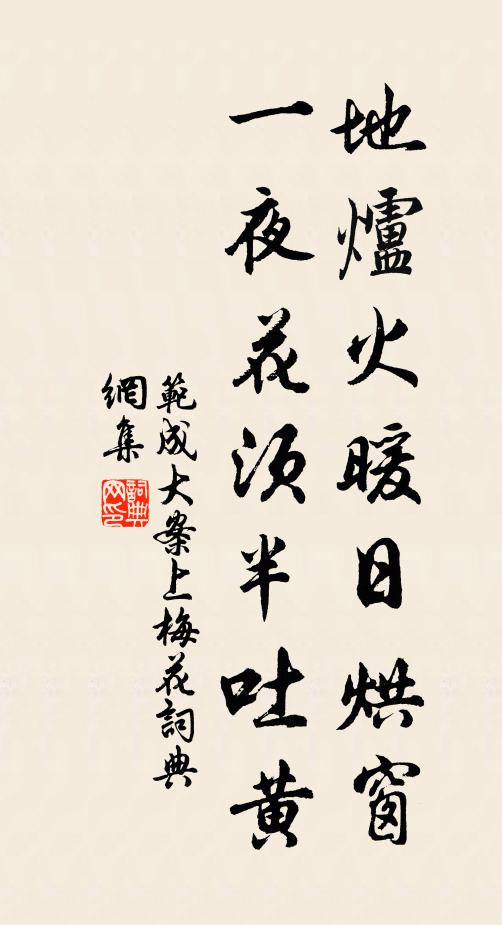 地爐火暖日烘窗
一夜花須半吐黄
範成大案上梅花詞典
網集
詞典網印